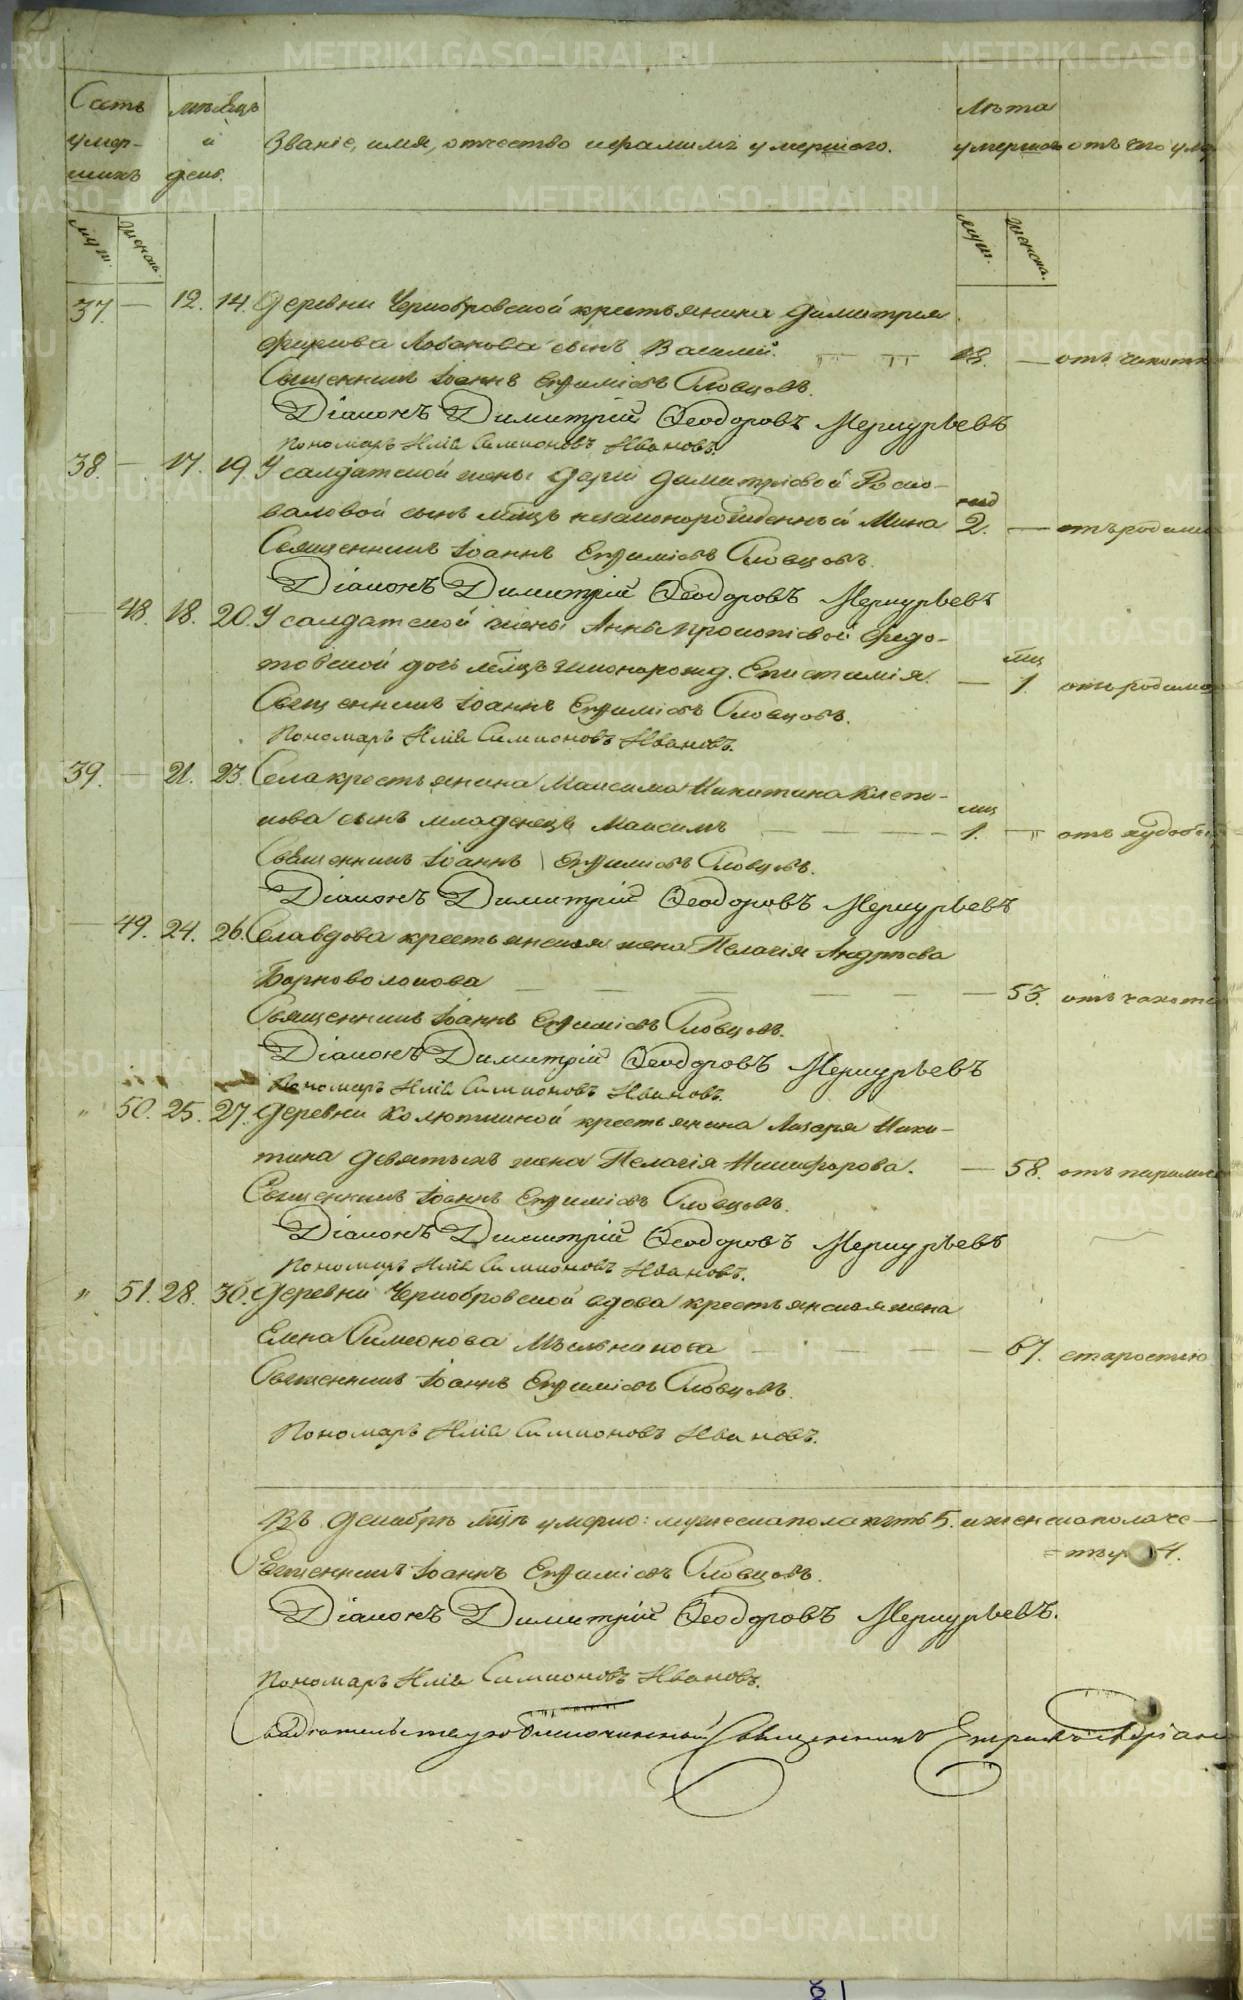 Счетъ умер- шихъ
мѣсяцъ и день.
Званіе, имя, отчество и фамилія умершаго.
Лѣта умершаго
отъ чего уме
муж. женск.
муж. женск.
37. — 12. 14. Деревни Чернобровской крестьянина Димитрія
Фирсова Лобанова сынъ Василій. 18. — отъ чахотк
Священникъ Іоаннъ Евфиміевъ Словцовъ.
Діаконъ Димитрій Ѳеодоровъ Меркурьевъ
Пономарь Илія Симионовъ Ивановъ.
38. — 17. 19. У салдатской жены Дарьи Димитріевой
валовой сынъ млцъ незаконорожденный Мина 2. — отъ родим
Священникъ Іоаннъ Евфиміевъ Словцовъ.
Діаконъ Димитрій Ѳеодоровъ Меркурьевъ
— 48. 18. 20. У салдатской жены Анны Прокопіевой Федо-
товской дочь млцъ законорожд. Епистимія. — мц 1. отъ родимо
Священникъ Іоаннъ Евфиміевъ Словцовъ.
Пономарь Илія Симионовъ Ивановъ.
39. — 21. 23. Села крестьянина Максима Никитина
кова сынъ младенецъ Максимъ — мц 1. — " отъ худобы
Священникъ Іоаннъ Евфиміевъ Словцовъ.
Діаконъ Димитрій Ѳеодоровъ Меркурьевъ
— 49. 24. 26. Села вдова крестьянская жена Пелагія Андреева
Барноволокова — 53. отъ чахотк
Священникъ Іоаннъ Евфиміевъ Словцовъ.
Діаконъ Димитрій Ѳеодоровъ Меркурьевъ
Пономарь Илія Симионовъ Ивановъ.
" 50. 25. 27. Деревни Колюткиной крестьянина Лазаря Ники-
тина Девятыхъ жена Пелагія Никифорова. — 58. отъ паралич
Священникъ Іоаннъ Евфиміевъ Словцовъ.
Діаконъ Димитрій Ѳеодоровъ Меркурьевъ
Пономарь Илія Симионовъ Ивановъ.
" 51. 28. 30. Деревни Чернобровской вдова крестьянская жена
Елена Симеонова Мѣльникова — 67. старостію
Священникъ Іоаннъ Евфиміевъ Словцовъ.
Пономарь Илія Симионовъ Ивановъ.
Въ Декабрѣ мцѣ умерло: мужеска пола пять 5. и женска пола че-
= тыр 4.
Священникъ Іоаннъ Евфиміевъ Словцовъ.
Діаконъ Димитрій Ѳеодоровъ Меркурьевъ.
Пономарь Илія Симионовъ Ивановъ.
Свидѣтельствую благочинный Священникъ
METRIKI.GASO-URAL.RU